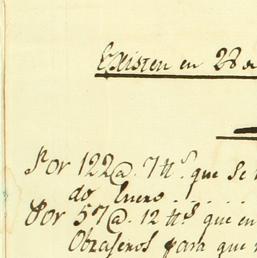 Existen en 28 de
Por 122@. 7 tt.s que se
do Enero . . . . .
Por 57@. 12 tt.s que en
Obrageros para que